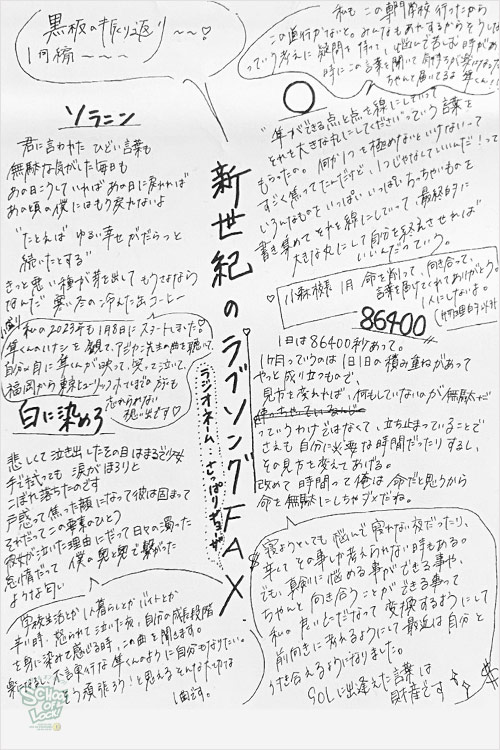 黒板の振り返り〜〜♡
1月編〜〜〜
ソラニン
君に言われた ひどい言葉も
無駄な気がした毎日も
あの日こうしていれば あの日に戻れれば
あの頃の僕にはもう戻れないよ
"たとえば ゆるい幸せがだらっと
続いたとする"
きっと悪い種が芽を出して もうさよなら
なんだ 寒い冬の冷えた缶コーヒー
私の2023年も1月8日にスタートしました!
隼くんのハナシを聴いて、アジカン先生の曲を聴いて、
自分の目に隼くんが映って、笑って泣いて、
福岡から東京
忘れられない
思い出です♡
白に染めろ
悲しくて泣き出したその日はまるで少女
手で拭っても 涙がほろりと
こぼれ落ちたのです
戸惑って焦った顔になって彼は固まって
それだってこの青春のひとつ
彼女が泣いた理由にだって日々の濁った
怠惰だって 僕の奥と奥で繋がった
ような匂い
学校生活とか1人暮らしとかバイトとか
辛い時、怒られて泣いた夜、自分の成長段階
を身に染みて感じる時、この曲を聞きます。
隼くんのように自分もなりたい。
もう頑張ろう!と思える そんな大切な
1曲です。
新世紀のラブソングFAX
ラジオネーム さっぱりギョーザ
私もこの専門学校行ったから
この進行がないと。みんなもあれするからそうしな
っていう考えに疑問を持って、悩んで苦しむ時があ
時にこの言葉を聞いて
ちゃんと届いてるよ 隼くん!!
○
"隼ができる点と点を線にしていって
それを大きな丸にしてください"っていう言葉を
もらった。何か1つを極めないといけないって
すごく焦ってたんだけど、1つじゃなくていいんだ!って
いろんなものをいっぱいいっぱいちっちゃいものを
書き集めて それを線にしていって、最終的に
大きな丸にして自分を終えさせれば
いいんだっていう。
♡小森隼 1月 命を削って、向き合って、
言葉を届けてくれてありがとう!
1人にしないよ。
86400
1日は86400秒があって。
1ヶ月っていうのは 1日1日の積み重ねがあって
やっと成り立つもので、
見方を変えれば、何もしていないのが無駄だ
っていうわけではなくて、立ち止まっていることで
さえも 自分に必要な時間だったりするし、
その見方も変えてあげる。
改めて 時間って俺は命だと思うから
命を無駄にしちゃダメだね。
寝ようとしても 悩んで 寝れない夜だったり、
辛くて その事しか考えられない時もある。
でも、真剣に悩める事ができる事や、
ちゃんと向き合うことができる事って
私の良いとこだなって 変換するようにして
前向きに考えれるようにして 最近は自分と
うまく合えるようになりました。
SOLに出逢えた言葉は
財産です
SCHOOL OF LOCK!